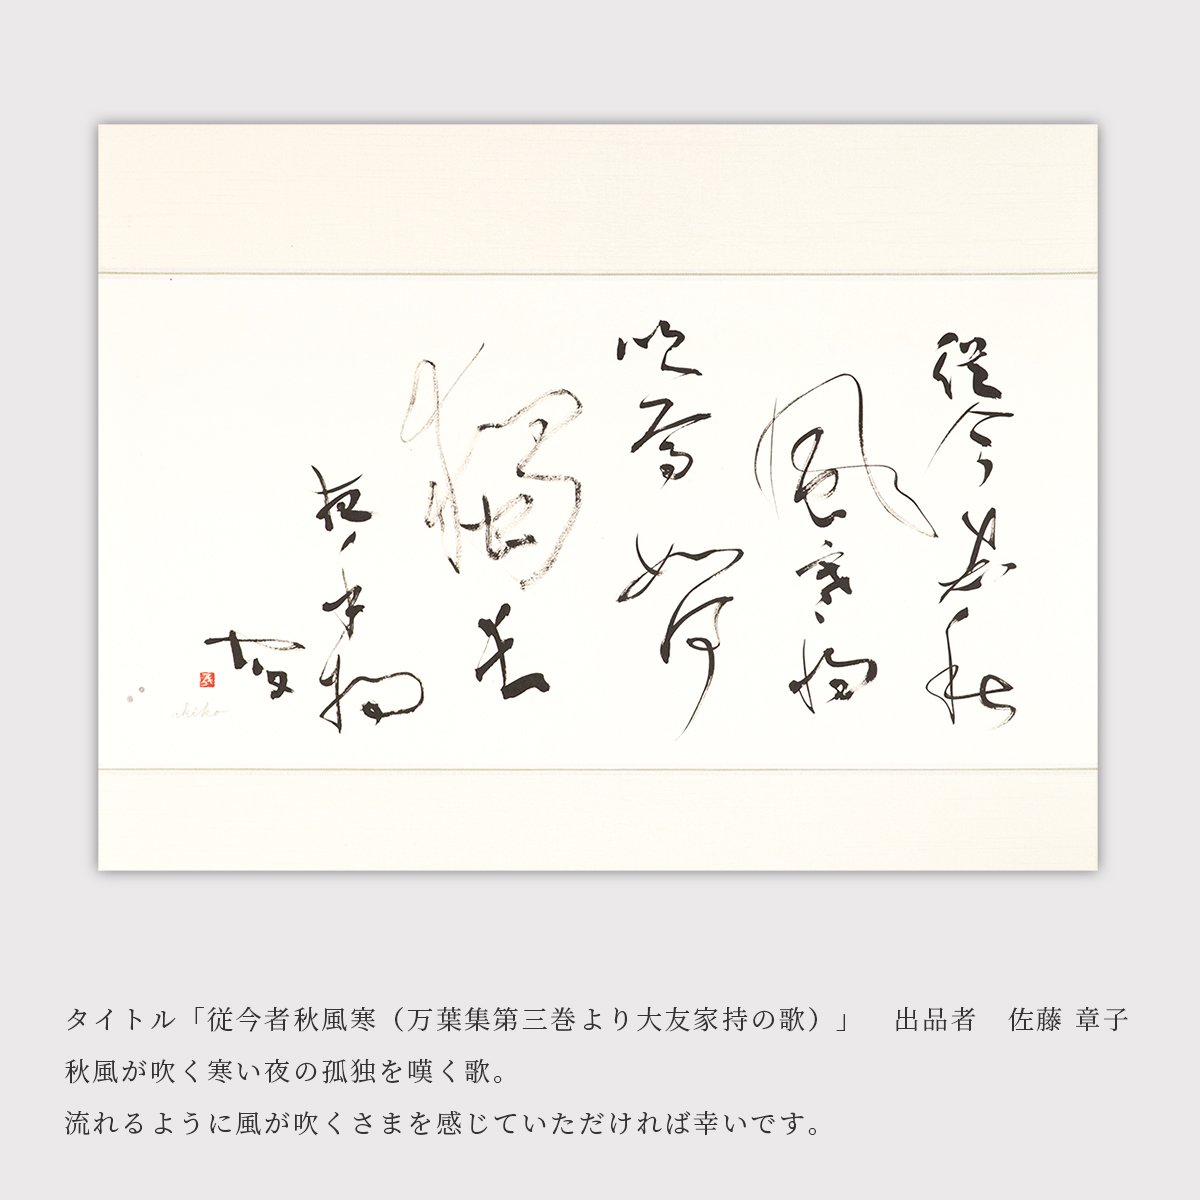 從今者秋
風寒将
吹焉如何
獨長
夜乎将
宿
akiko
タイトル「従今者秋風寒（万葉集第三巻より大友家持の歌）」　出品者　佐藤 章子
秋風が吹く寒い夜の孤独を嘆く歌。
流れるように風が吹くさまを感じていただければ幸いです。